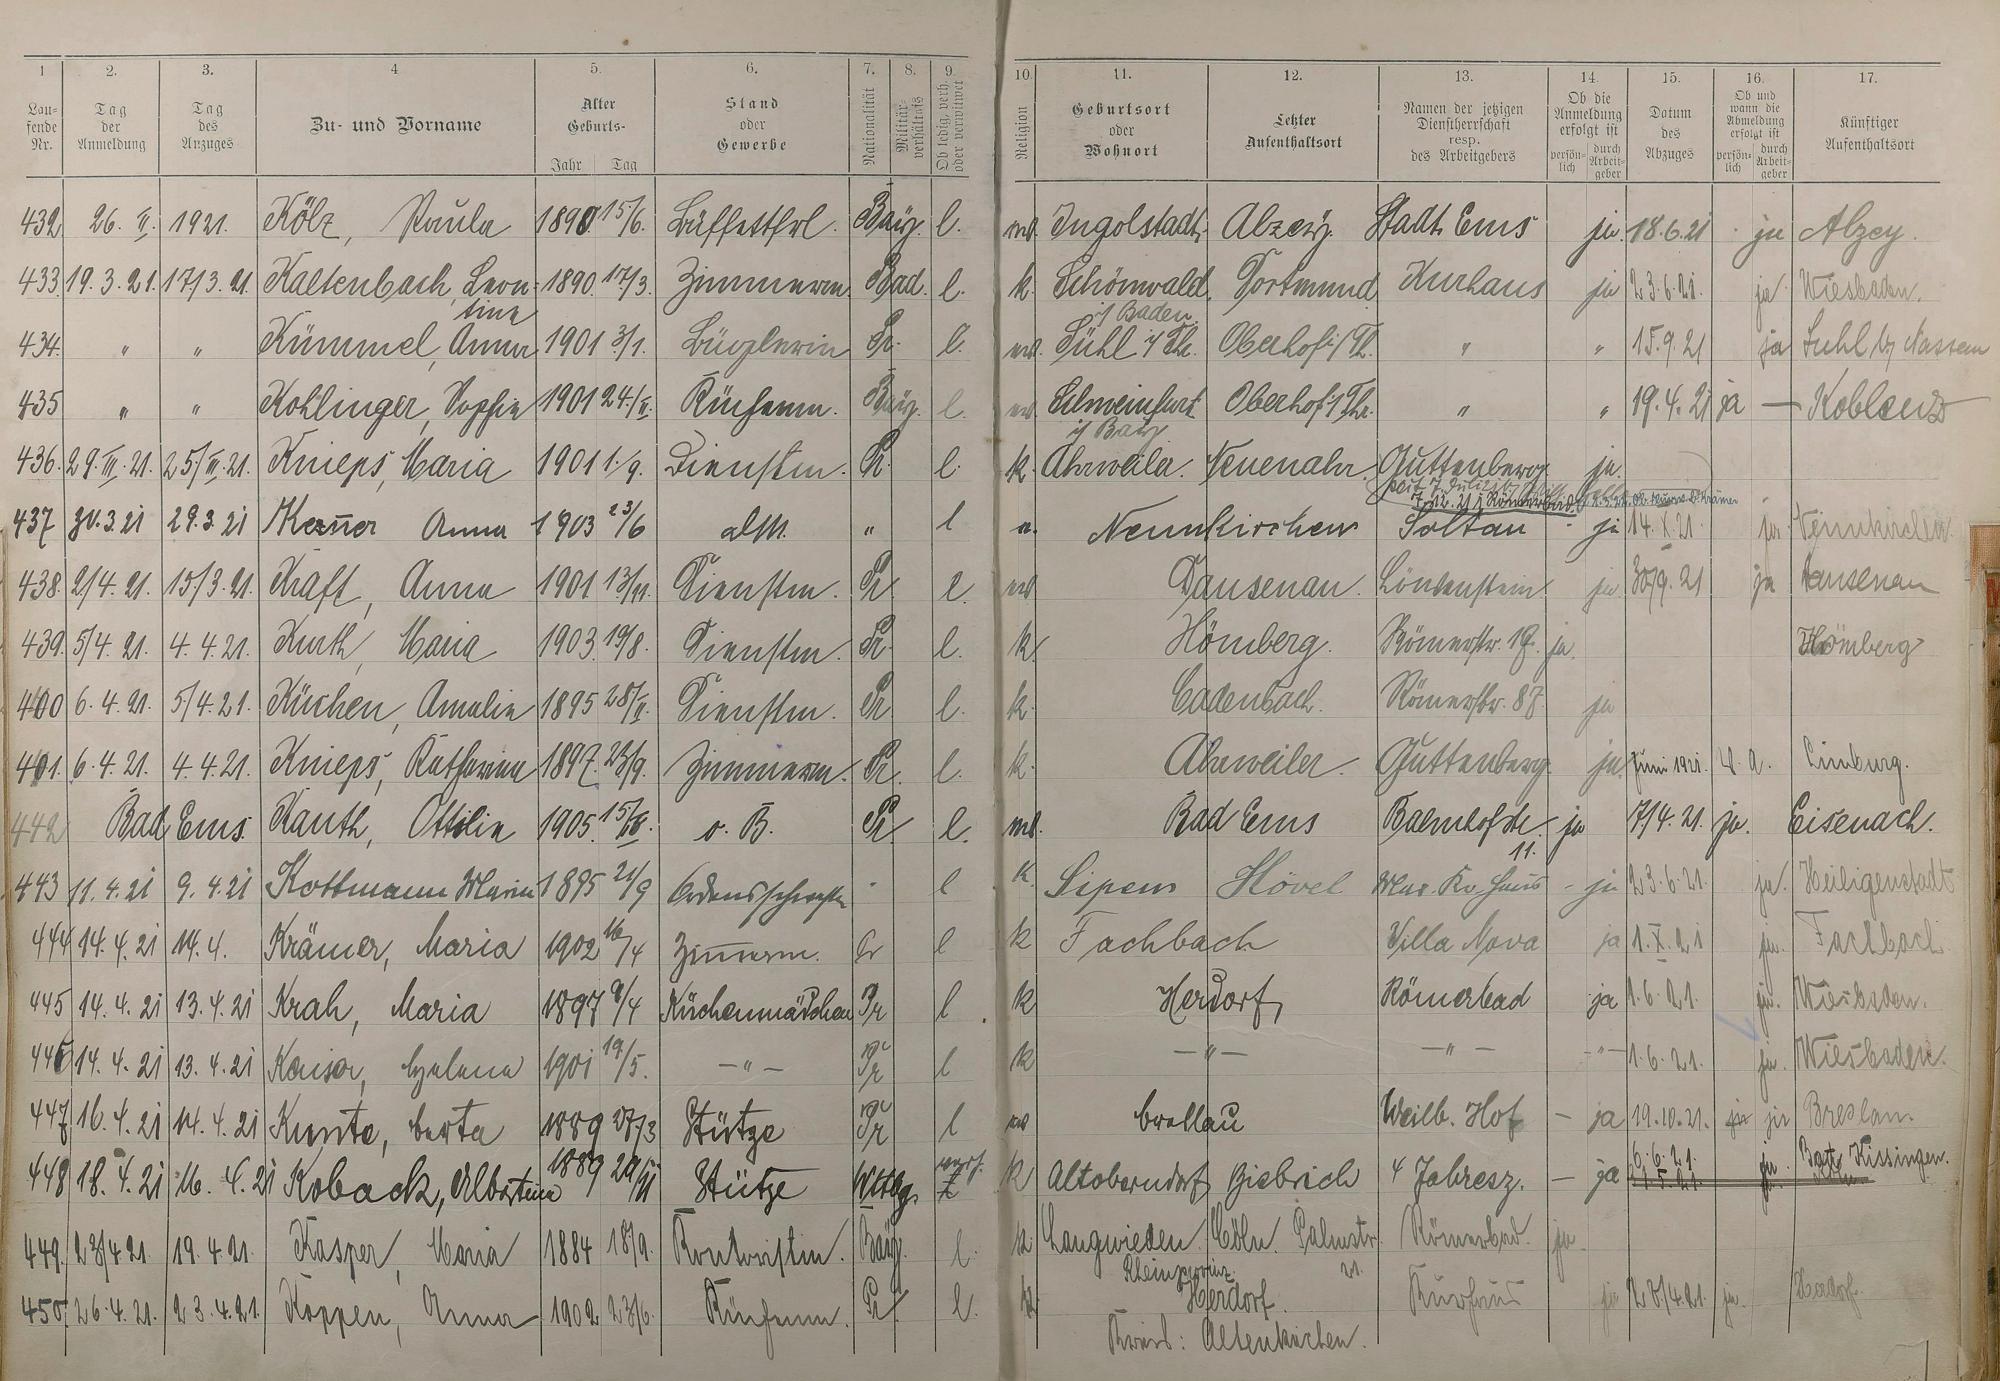 1 2. 3. 4 5. 6. 7. 8. 9. 10. 11. 12. 13. 14. 15. 16. 17.
Lau-fende Nr. Tag der Anmeldung Tag des Anzuges Zu- und Vorname Alter Geburts- Jahr Tag Stand oder Gewerbe Nationalität Militär-verhältnis Ob ledig, verh. oder verwitwet Religion Geburtsort oder Wohnort Letzter Aufenthaltsort Namen der jetzigen Dienstherrschaft resp. des Arbeitgebers Ob die Anmeldung erfolgt ist persön-lich durch Arbeit-geber Datum des Abzuges Ob und wann die Abmeldung erfolgt ist persön-lich durch Arbeit-geber Künftiger Aufenthaltsort
432 26. II. 1921. Kölz, Paula 1890 15/6. Büffettfrl. Bay. l. Ingolstadt Alzey. Stadt Ems ja 18.6.21 ja Alzey.
433. 19.3.21. 17/3.21. Kaltenbach, Leon- 1890. 17/3. Zimmerm. Bad. l. k. Schönwald Dortmund Kurhaus ja 23.6.21. ja Wiesbaden.
tine i/ Baden.
434. " " Kümmel, Anna 1901 3/1. Büglerin Pr. l. Suhl i/Th. Oberhof i/Th. " " 15.9.21 ja Suhl
435 " " Kohlinger, Sophie 1901 24./II. Küchenm. Bay. l. Schweinfurt Oberhof i/Thr. " " 19.4.21 ja — Koblenz
i/ Bay.
436. 29.III.21. 25/III.21. Knieps, Maria 1901 1./9. Dienstm. Pr. l. k. Ahrweiler. Neuenahr. Guttenberg ja.
7.12.21 Römerbad Krämer
437 30.3.21 29.3.21 Anna 1903 23/6 " l Neunkirchen Soltau - ja 14.X.21 ja Neunkirchen
438. 2/4.21. 15/3.21. Kraft, Anna 1901 13/11. Dienstm. Pr. l. Dausenau. Löwenstein ja 30/9.21 ja Dausenau
439. 5/4.21. 4.4.21. Kurth, Maria 1903. 19/8. Dienstm. Pr. l. k. Hömberg. Römerstr. 17. ja. Hömberg
400 6.4.21. 5/4.21. Küchen, Amalie 1895 28/II. Dienstm. Pr. l. k. Cadenbach. Römerstr. 87. ja
401. 6.4.21. 4.4.21. Knieps, Katharina 1897. 23/9. Zimmerm. Pr. l. k. Ahrweiler. Guttenberg. ja. Juni 1921. Limburg.
442 Bad Ems Kauth, Ottilie 1905. o. B. Pr. l. Bad Ems Bahnhofstr. ja 7/4.21. ja. Eisenach.
11.
443 11.4.21 9.4.21 Kottmann Maria 1895 21/9 Ordensschwester l k. Hövel - ja 23.6.21. ja. Heiligenstadt
444 14.4.21 14.4. Krämer, Maria 1902 16/4 Zimmerm. Pr l k Fachbach Villa Nova ja 1.X.21 ja. Fachbach
445 14.4.21 13.4.21 Krah, Maria 1897 9/4 Küchenmädchen Pr l k Herdorf Römerbad ja 1.6.21. ja. Wiesbaden.
446 14.4.21 13.4.21 Kaiser, Helena 1901 19/5. —"— Pr l k —"— —"— —"— 1.6.21. ja. Wiesbaden.
447 16.4.21 14.4.21 Kunte, Berta 1889 27/3 Stütze Pr l Breslau Weilb. Hof — ja 19.10.21. ja ja Breslau.
448 18.4.21 16.4.21 Koback, Albertine 1889 Stütze Wttbg. k Altoberndorf Biebrich 4 Jahresz. — ja 6.6.21. ja. Bad Kissingen.
31.5.21.
449. 23/4.21. 19.4.21. Kasper, Maria 1884 18/9. Kontoristin. Bay. l. k. Langwieden. Cöln. Palmstr. Römerbad. ja.
Rheinprovinz. 21.
450. 26.4.21. 23.4.21. Koppen, Anna 1902 23/6. Küchenm. Pr. l. k. Herdorf. Kurhaus ja 28/4.21. ja. Herdorf.
Kreis: Altenkirchen.